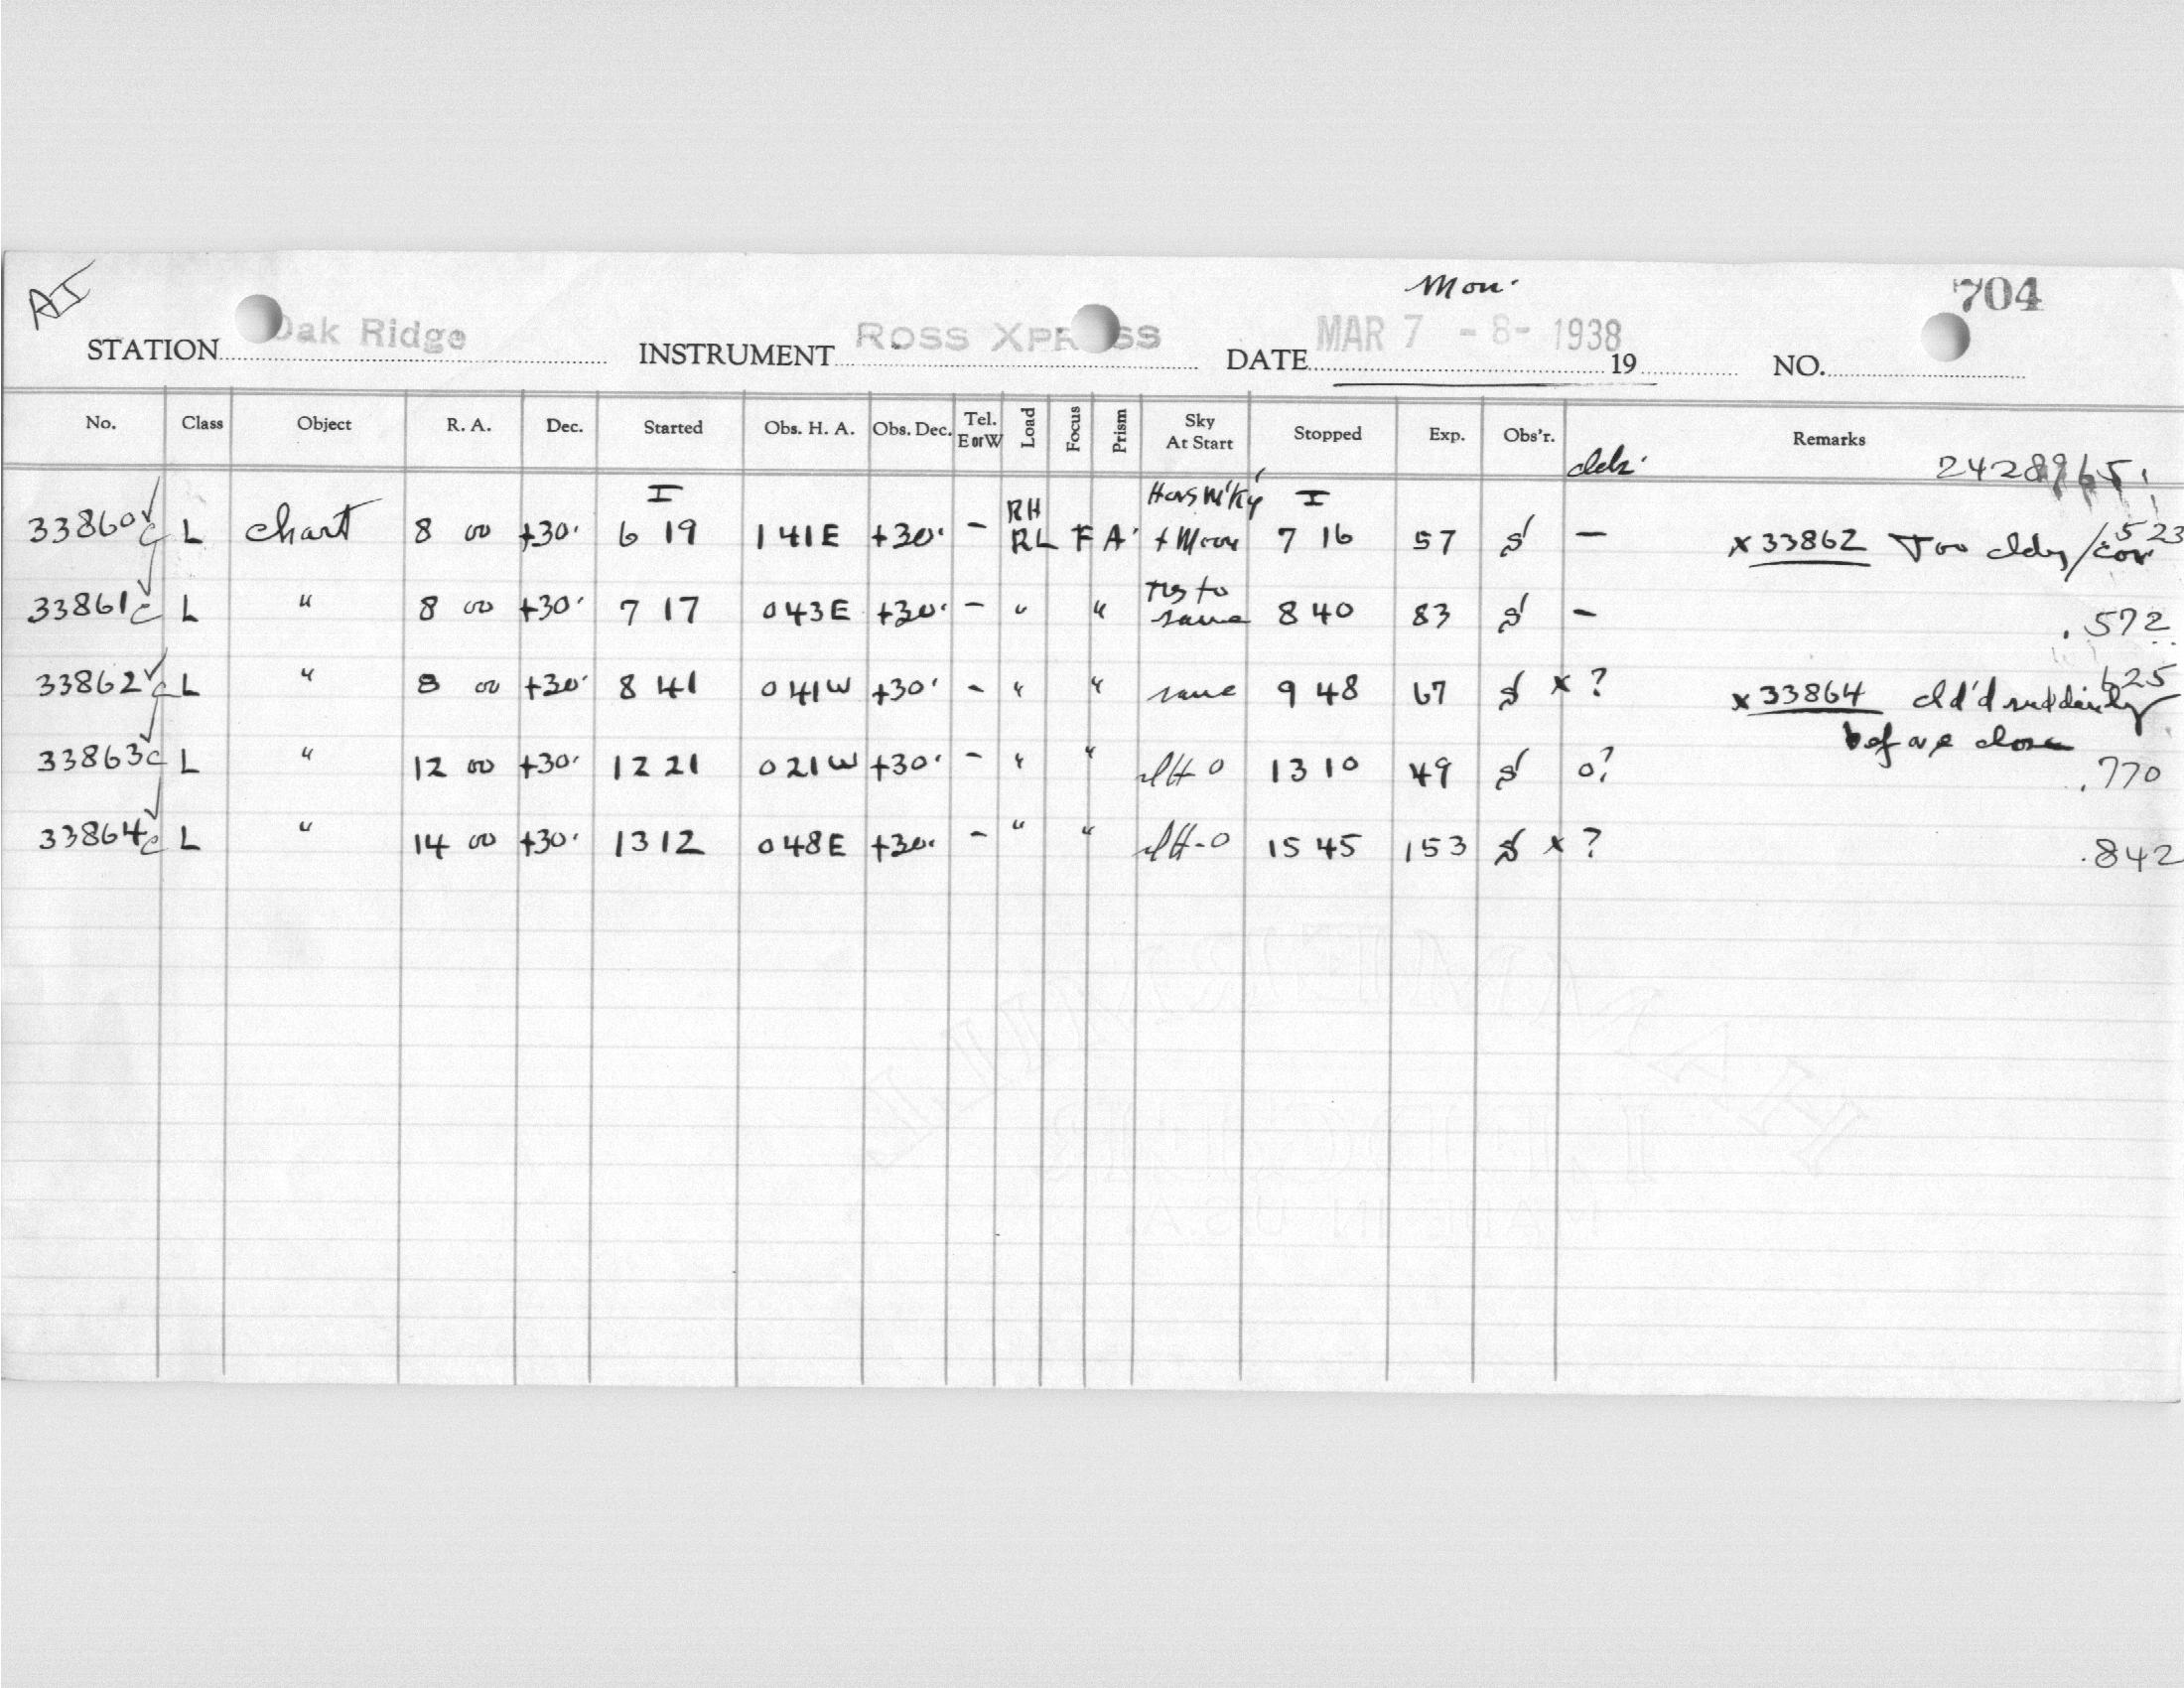 AI
Mon.
704
STATION Oak Ridge INSTRUMENT ROSS XPRESS DATE MAR 7 - 8 - 1938 19 NO.
No. Class Object R. A. Dec. Started Obs. H. A. Obs. Dec. Tel. E or W Load Focus Prism Sky At Start Stopped Exp. Obs'r. Remarks
2428965.
33860 c L chart 8 00 +30· I 6 19 1 41 E +30· - RH RL F A· + Moon I 7 16 57 S - x 33862 Too cldy/ .523
33861 c L " 8 00 +30· 7 17 0 43 E +30· - " " same 8 40 83 S - .572
33862 c L " 8 00 +30· 8 41 0 41 W +30· - " " same 9 48 67 S x ? x 33864 cld'd suddenly .625
before close
33863 c L " 12 00 +30· 12 21 0 21 W +30· - " " 13 10 49 S 0? .770
33864 c L " 14 00 +30· 13 12 0 48 E +30· - " " 15 45 153 S x ? .842
HAMMERMILL
LEDGER
MADE IN U.S.A.